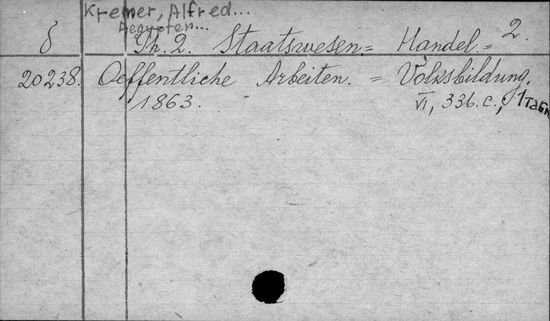 Kremer, Alfred...
Aegypten...
δ Th. 2. Staatswesen = Handel. = 2.
20238. Oeffentliche Arbeiten. = Volksbildung.
1863. VI, 336. c., 1 табл